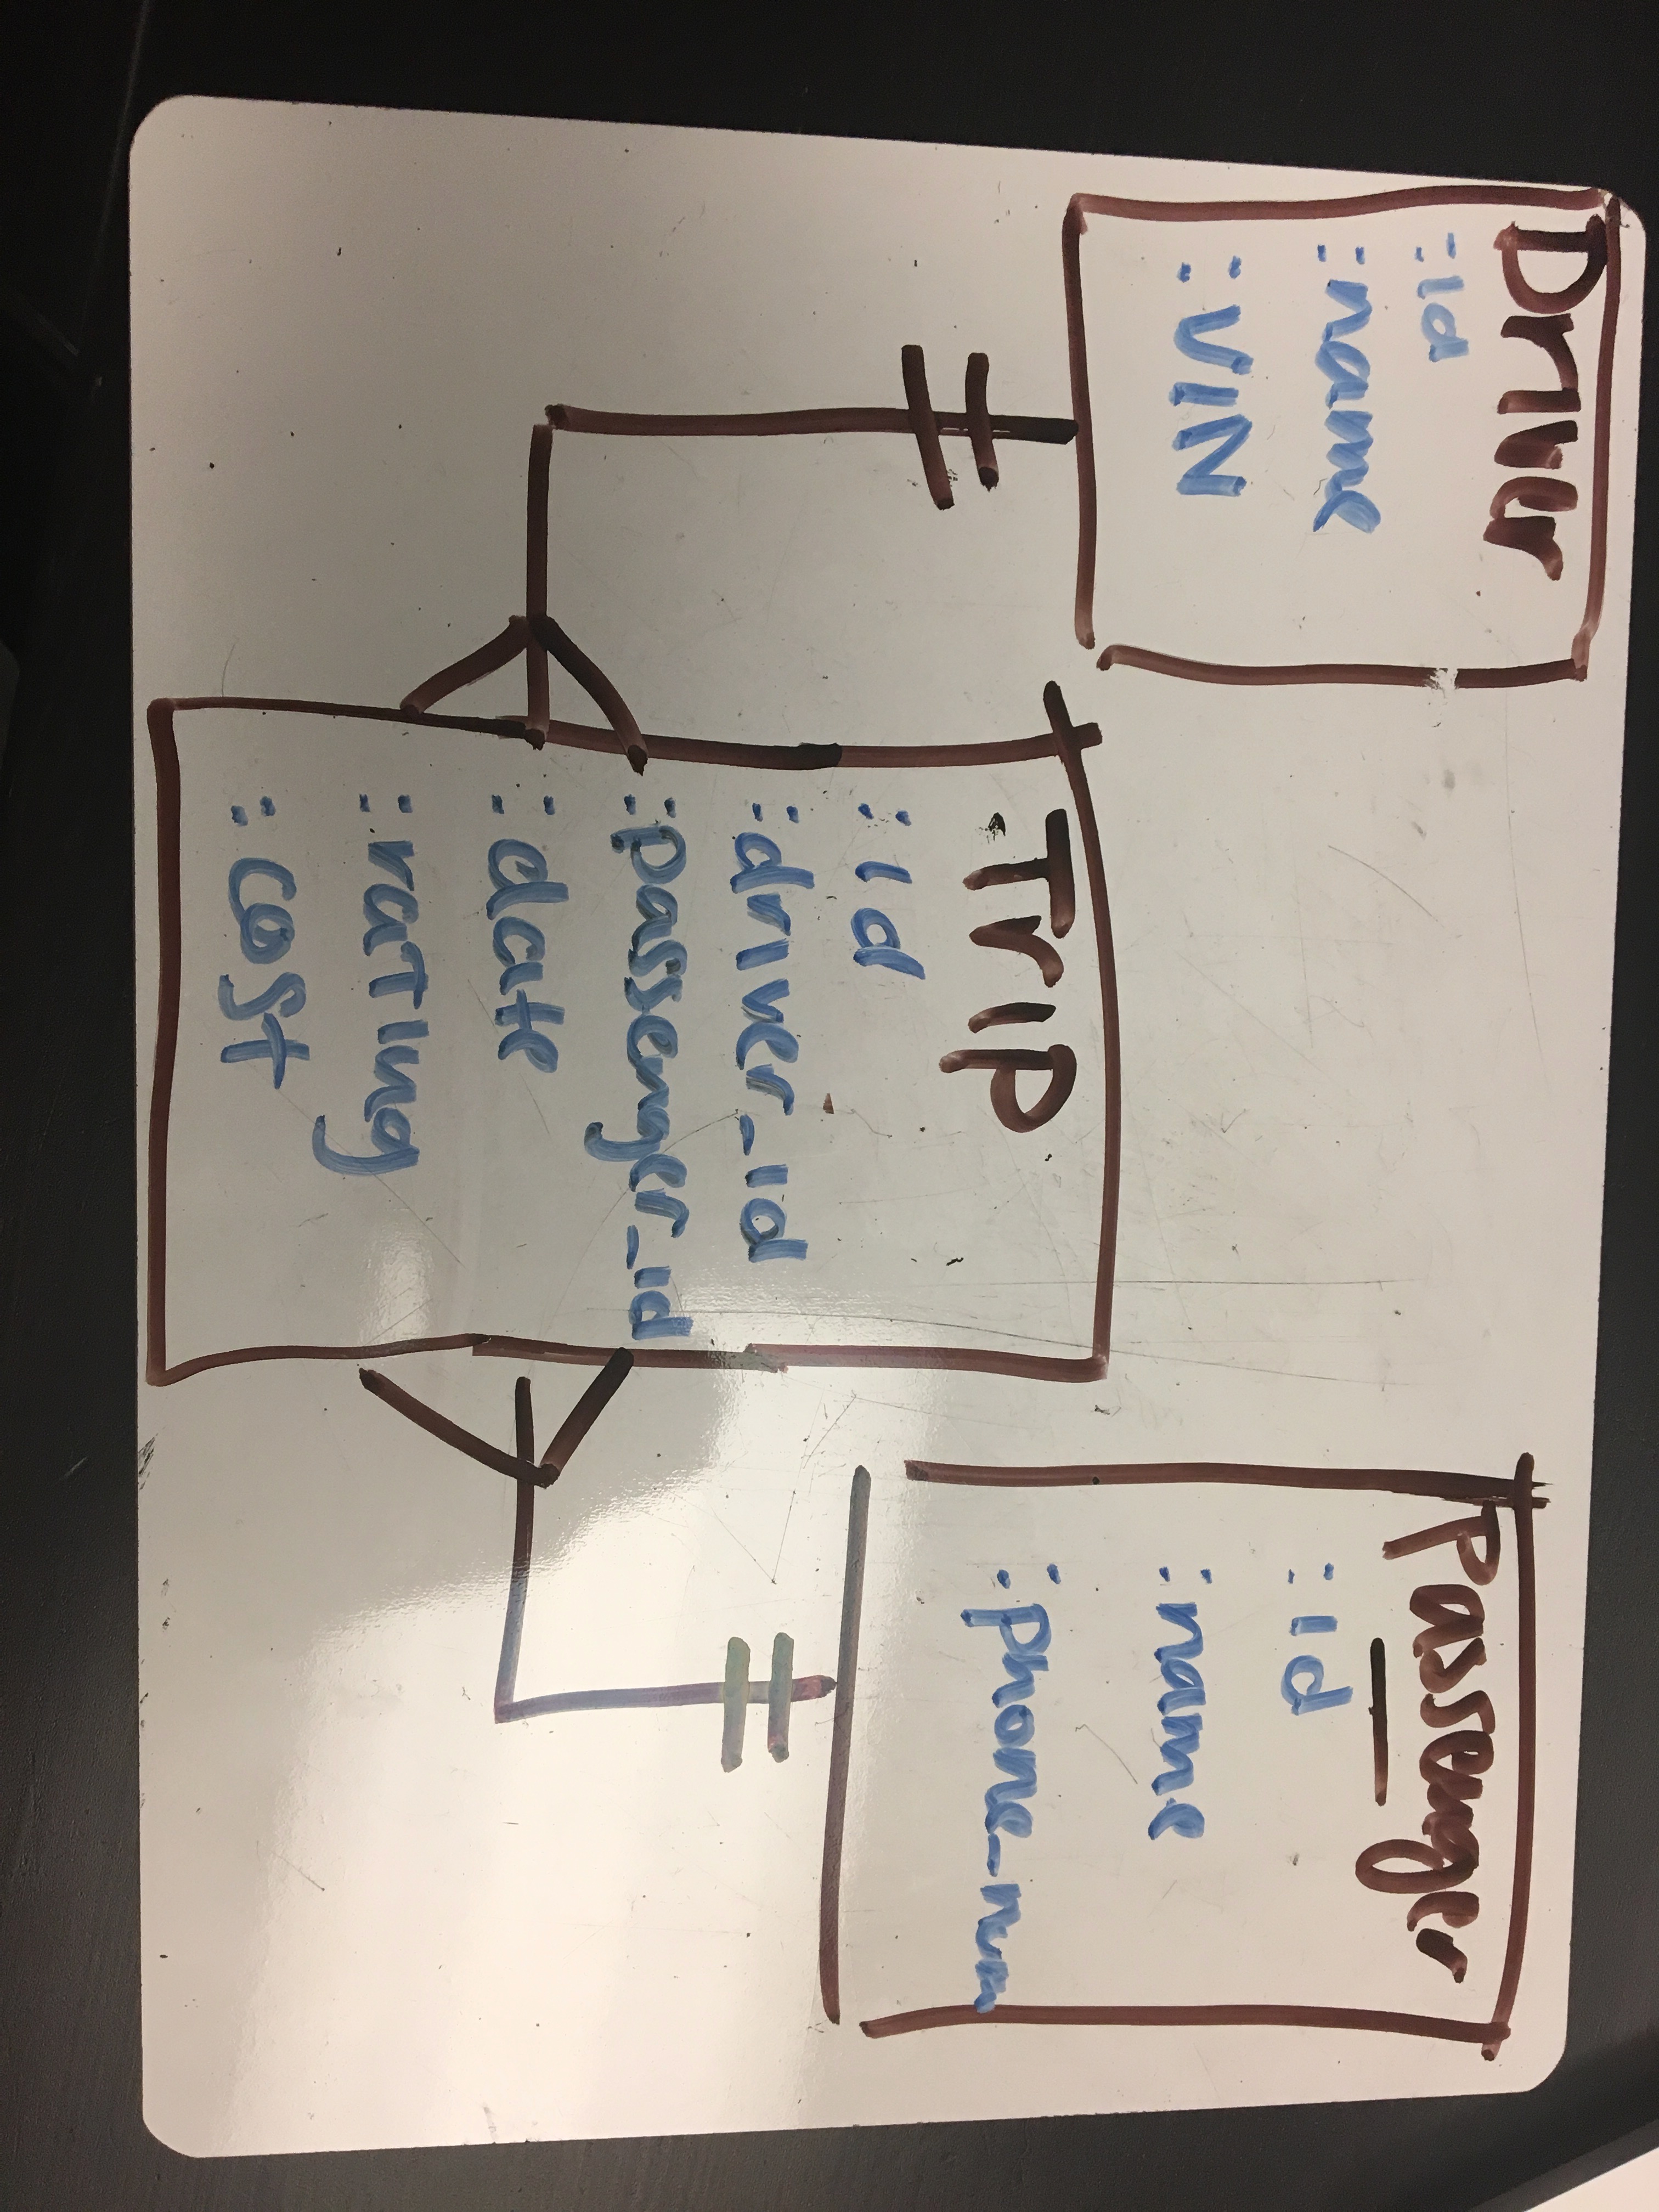 Driver
:id
:name
:VIN
Trip
:id
:driver_id
:passenger_id
:date
:rating
:cost
Passenger
:id
:name
:phone_num